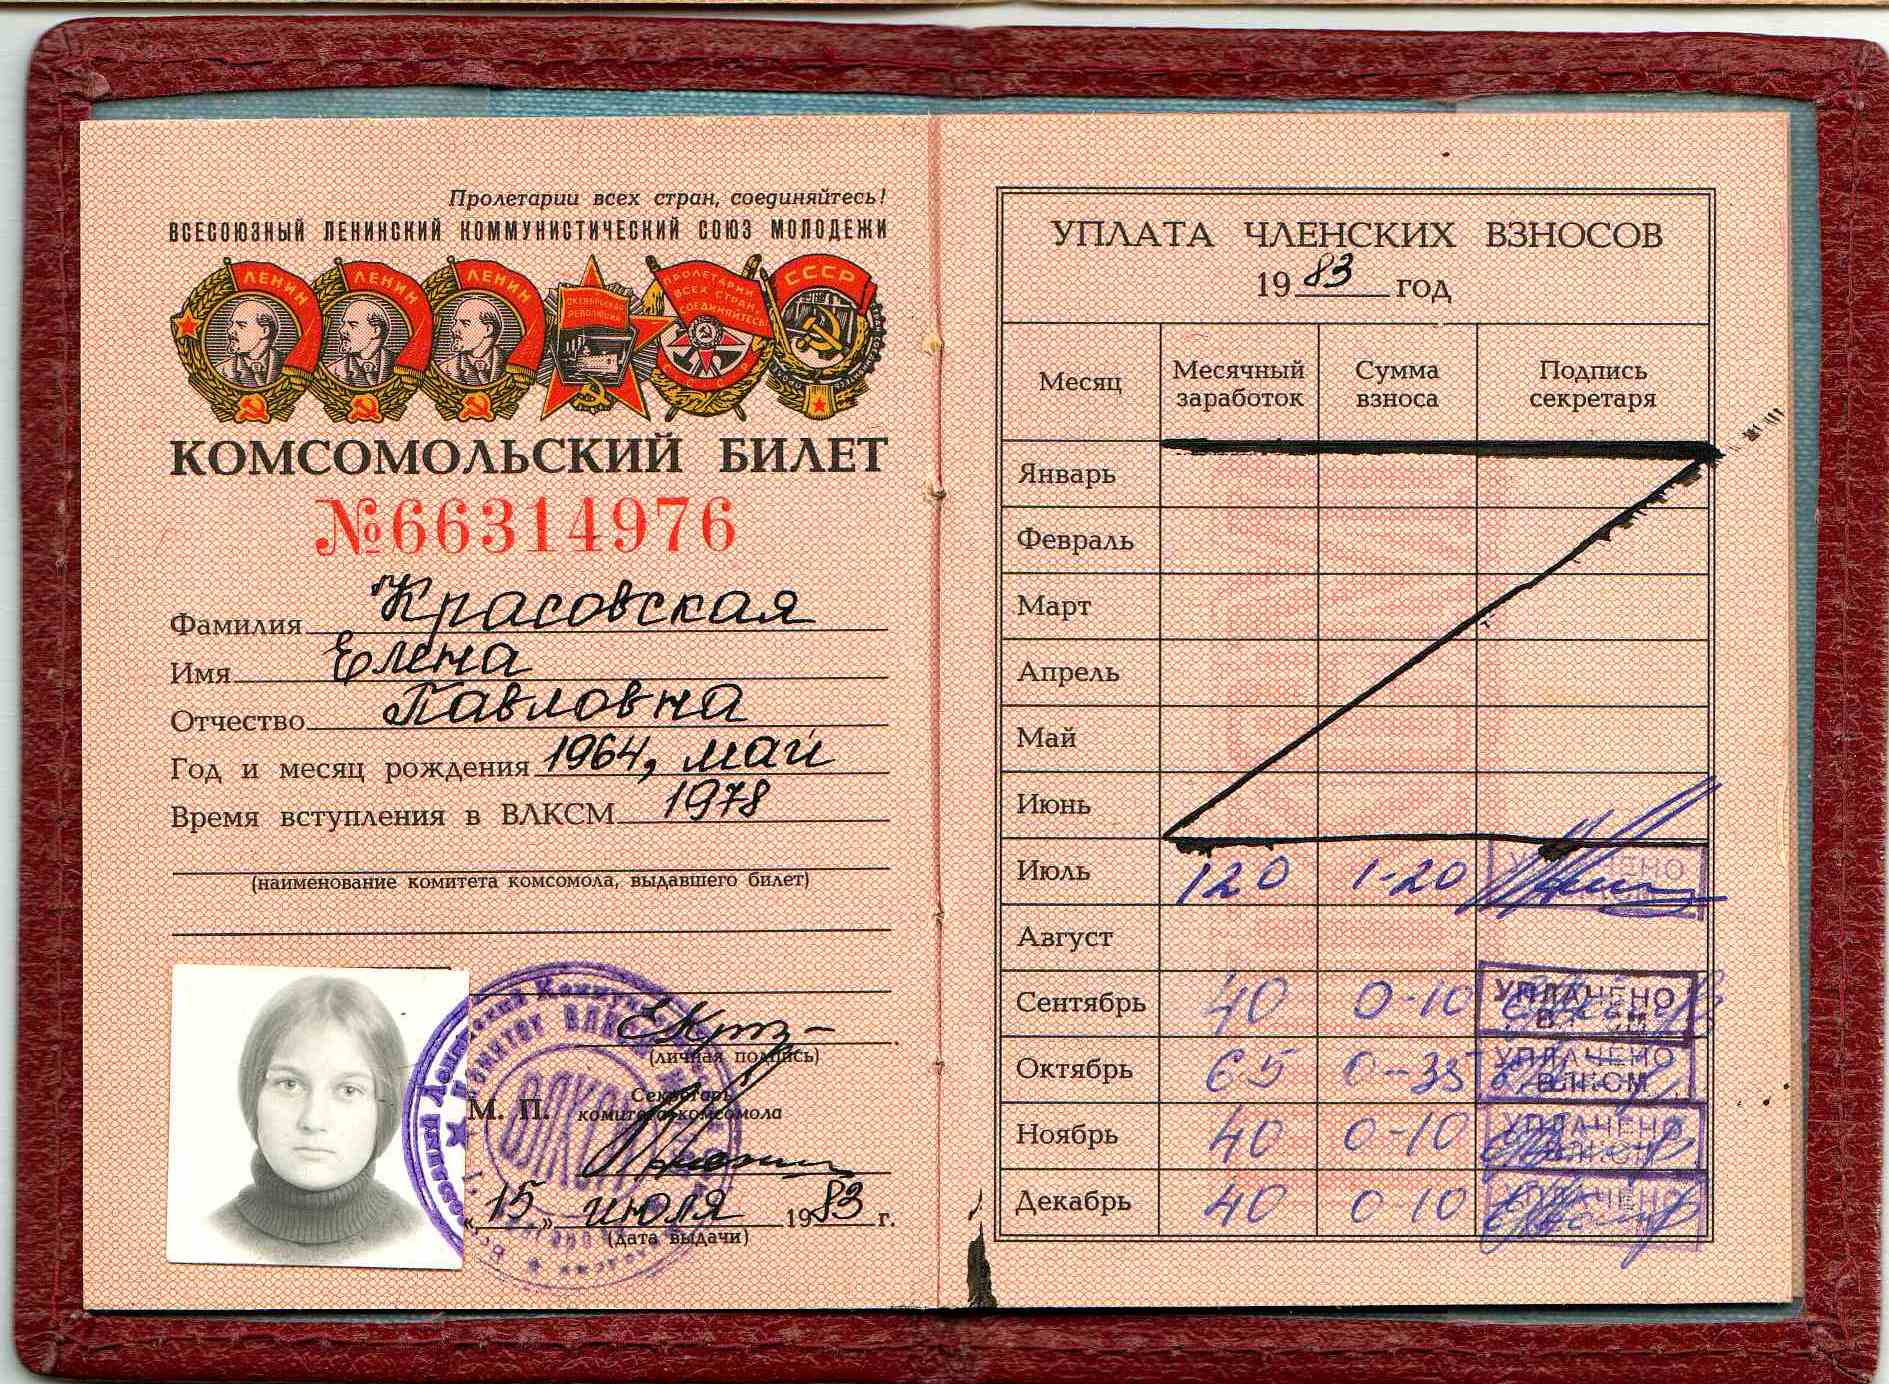 Пролетарии всех стран, соединяйтесь!
ВСЕСОЮЗНЫЙ ЛЕНИНСКИЙ КОММУНИСТИЧЕСКИЙ СОЮЗ МОЛОДЕЖИ
ЛЕНИН ЛЕНИН ЛЕНИН ОКТЯБРЬСКАЯ РЕВОЛЮЦИЯ ПРОЛЕТАРИИ ВСЕХ СТРАН, СОЕДИНЯЙТЕСЬ! СССР
КОМСОМОЛЬСКИЙ БИЛЕТ
№66314976
Фамилия Красовская
Имя Елена
Отчество Павловна
Год и месяц рождения 1964, май
Время вступления в ВЛКСМ 1978
(наименование комитета комсомола, выдавшего билет)
(личная подпись)
Секретарь
М. П. комитета комсомола
«15» июля 1983 г.
(дата выдачи)
УПЛАТА ЧЛЕНСКИХ ВЗНОСОВ
1983 год
Месяц Месячный заработок Сумма взноса Подпись секретаря
Январь
Февраль
Март
Апрель
Май
Июнь
Июль 120 1-20 УПЛАЧЕНО
Август
Сентябрь 40 0-10 УПЛАЧЕНО
Октябрь 65 0-35 УПЛАЧЕНО ВЛКСМ
Ноябрь 40 0-10 УПЛАЧЕНО ВЛКСМ
Декабрь 40 0-10 УПЛАЧЕНО